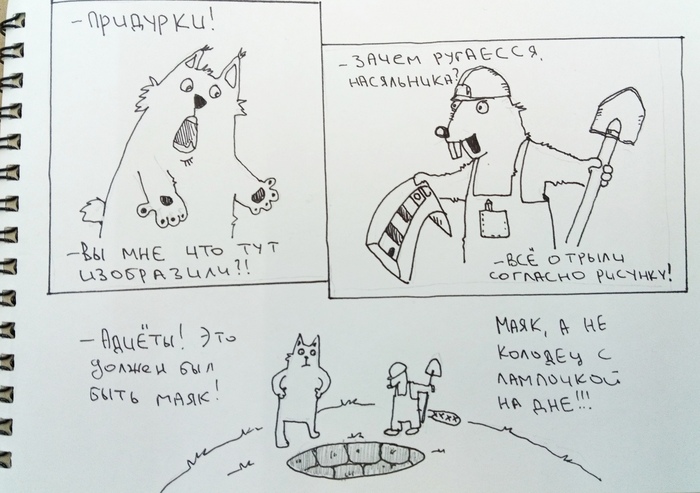 - ПРИДУРКИ!
- ВЫ МНЕ ЧТО ТУТ
ИЗОБРАЗИЛИ?!
- ЗАЧЕМ РУГАЕССЯ,
НАСЯЛЬНИКА?
- ВСЁ ОТРЫЛИ
СОГЛАСНО РИСУНКУ!
- АДИЁТЫ! ЭТО
ДОЛЖЕН БЫЛ
БЫТЬ МАЯК!
МАЯК, А НЕ
КОЛОДЕЦ С
ЛАМПОЧКОЙ
НА ДНЕ!!!